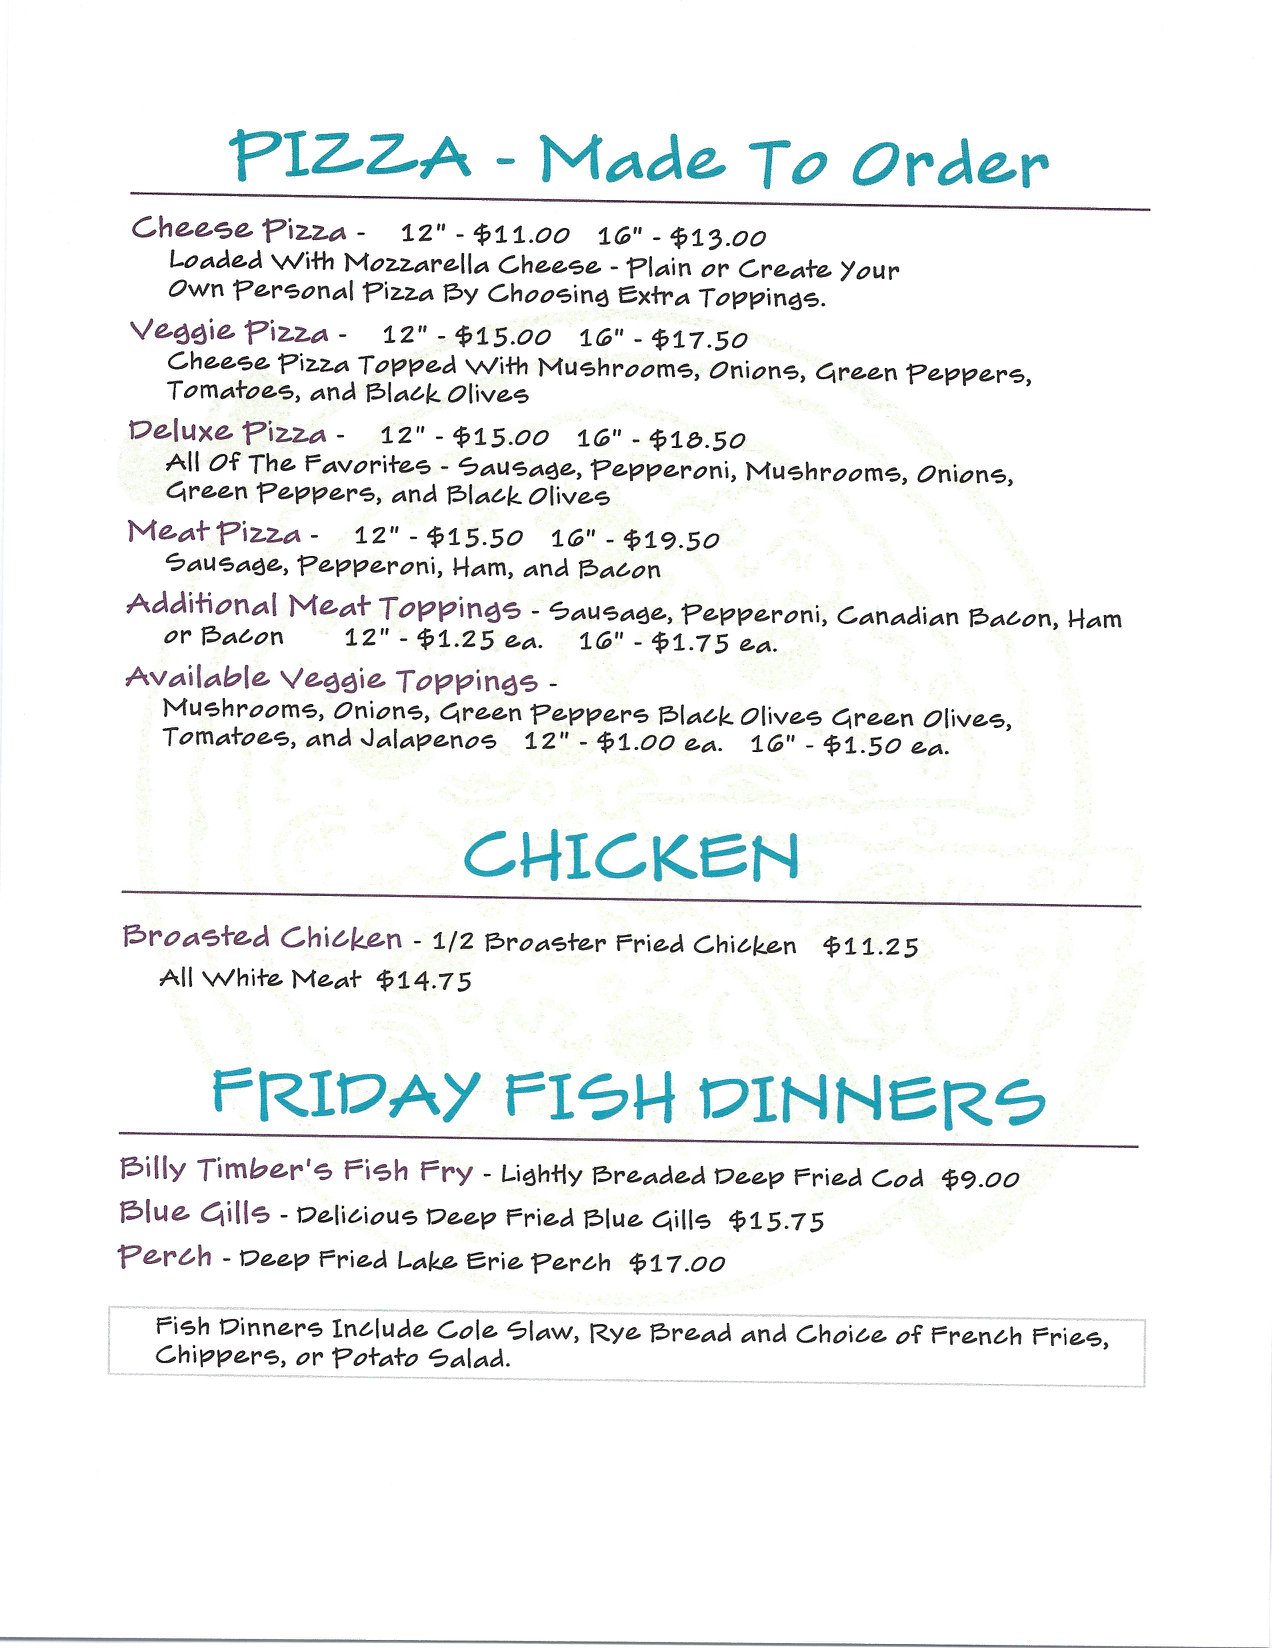 PIZZA - Made To Order
Cheese Pizza - 12" - $11.00 16" - $13.00
Loaded With Mozzarella Cheese - Plain or Create Your
Own Personal Pizza By Choosing Extra Toppings.
Veggie Pizza - 12" - $15.00 16" - $17.50
Cheese Pizza Topped With Mushrooms, Onions, Green Peppers,
Tomatoes, and Black Olives
Deluxe Pizza - 12" - $15.00 16" - $18.50
All Of The Favorites - Sausage, Pepperoni, Mushrooms, Onions,
Green Peppers, and Black Olives
Meat Pizza - 12" - $15.50 16" - $19.50
Sausage, Pepperoni, Ham, and Bacon
Additional Meat Toppings - Sausage, Pepperoni, Canadian Bacon, Ham
or Bacon 12" - $1.25 ea. 16" - $1.75 ea.
Available Veggie Toppings -
Mushrooms, Onions, Green Peppers Black Olives Green Olives,
Tomatoes, and Jalapenos 12" - $1.00 ea. 16" - $1.50 ea.
CHICKEN
Broasted Chicken - 1/2 Broaster Fried Chicken $11.25
All White Meat $14.75
FRIDAY FISH DINNERS
Billy Timber's Fish Fry - Lightly Breaded Deep Fried Cod $9.00
Blue Gills - Delicious Deep Fried Blue Gills $15.75
Perch - Deep Fried Lake Erie Perch $17.00
Fish Dinners Include Cole Slaw, Rye Bread and Choice of French Fries,
Chippers, or Potato Salad.